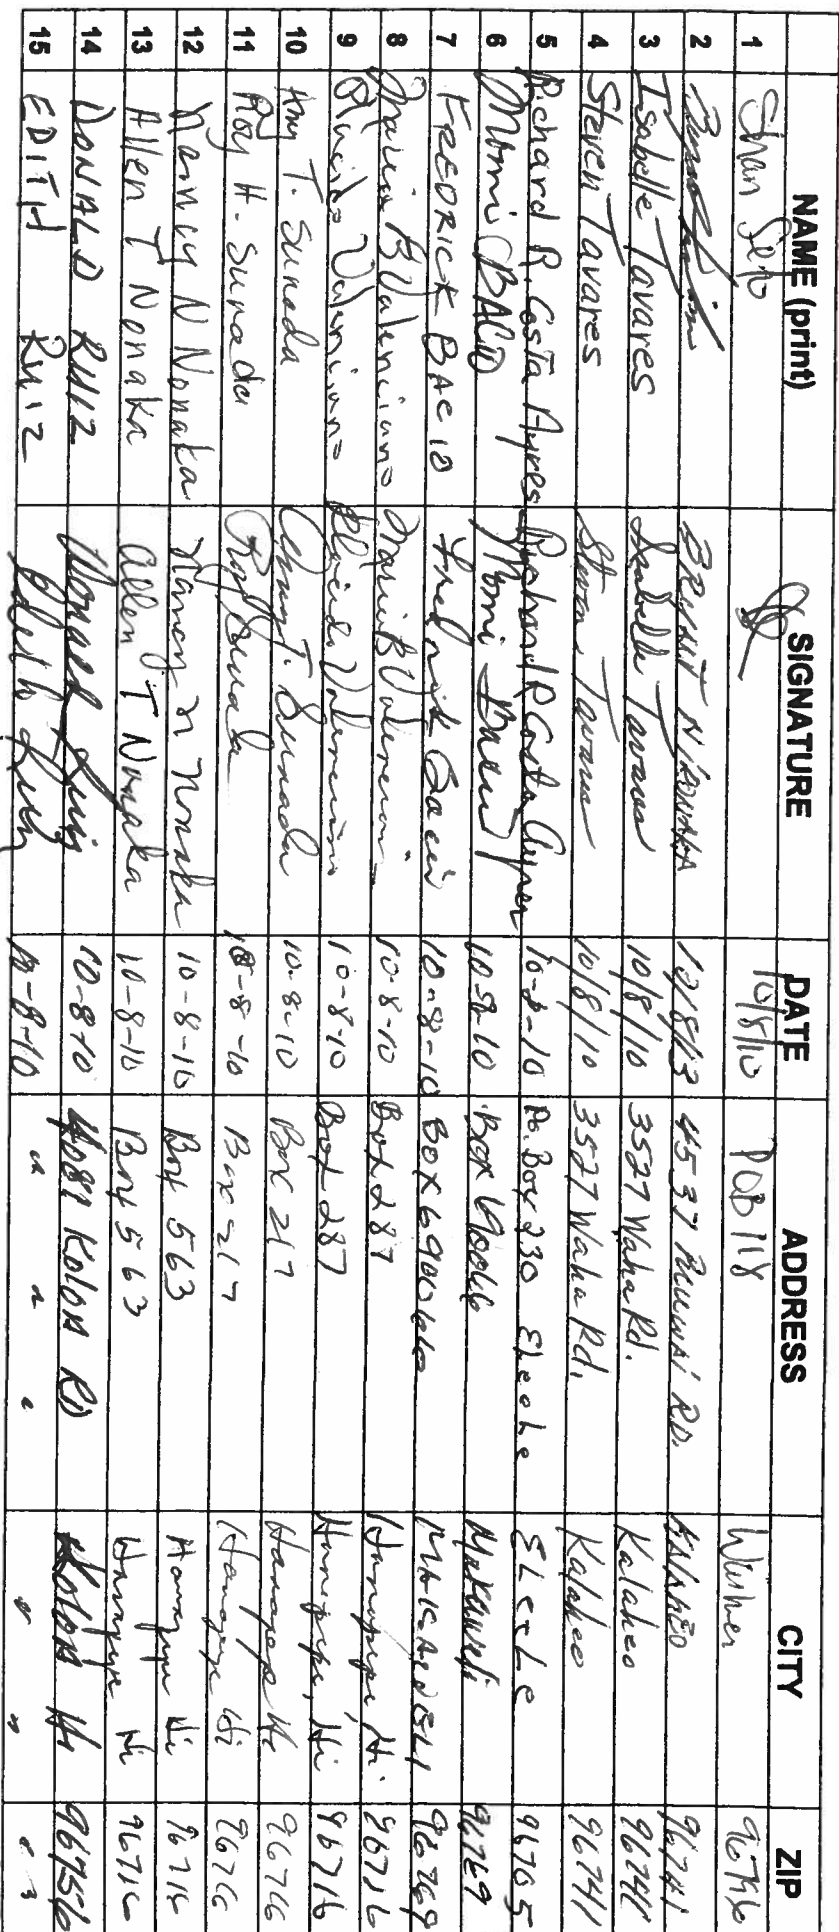 NAME (print) SIGNATURE DATE ADDRESS CITY ZIP
1 Shan 10/8/10 POB 118
2 BRYANT 10/8/13 4537 RD. KALAHEO 96741
3 Isabelle Tavares Isabelle Tavares 10/8/10 3527 Waha Rd. Kalaheo 96741
4 Steven Tavares Steven Tavares 10/8/10 3527 Waha Rd. Kalaheo 96741
5 Richard R. Costa Ayres Richard R Costa Ayres 10-8-10 Po. Box 230 Eleele ELeeLe 96705
6 Momi BACIO Momi Bacio 10-8-10 Box Makaweli 96769
7 FREDRICK BACIO Fredrick Bacio 10-8-10 BOX MAKAWELI 96769
8 Maria B Valenciano Maria B Valenciano 10-8-10 Box 287 Hanapepe Hi. 96716
9 Placido Valenciano Placido Valenciano 10-8-10 Box 287 Hanapepe, Hi 96716
10 Amy T. Sunada Amy T. Sunada 10-8-10 Box 217 Hanapepe Hi 96716
11 Roy H. Sunada Roy Sunada 10-8-10 Box 217 Hanapepe Hi 96716
12 Nancy N Nonaka Nancy N Nonaka 10-8-10 Box 563 Hanapepe Hi 96716
13 Allen T Nonaka Allen T Nonaka 10-8-10 Box 563 Hanapepe Hi 96716
14 DONALD RUIZ Donald Ruiz 10-8-10 KOLOA RD KOLOA HI 96756
15 EDITH RUIZ Edith Ruiz 10-8-10 " " " " " " "